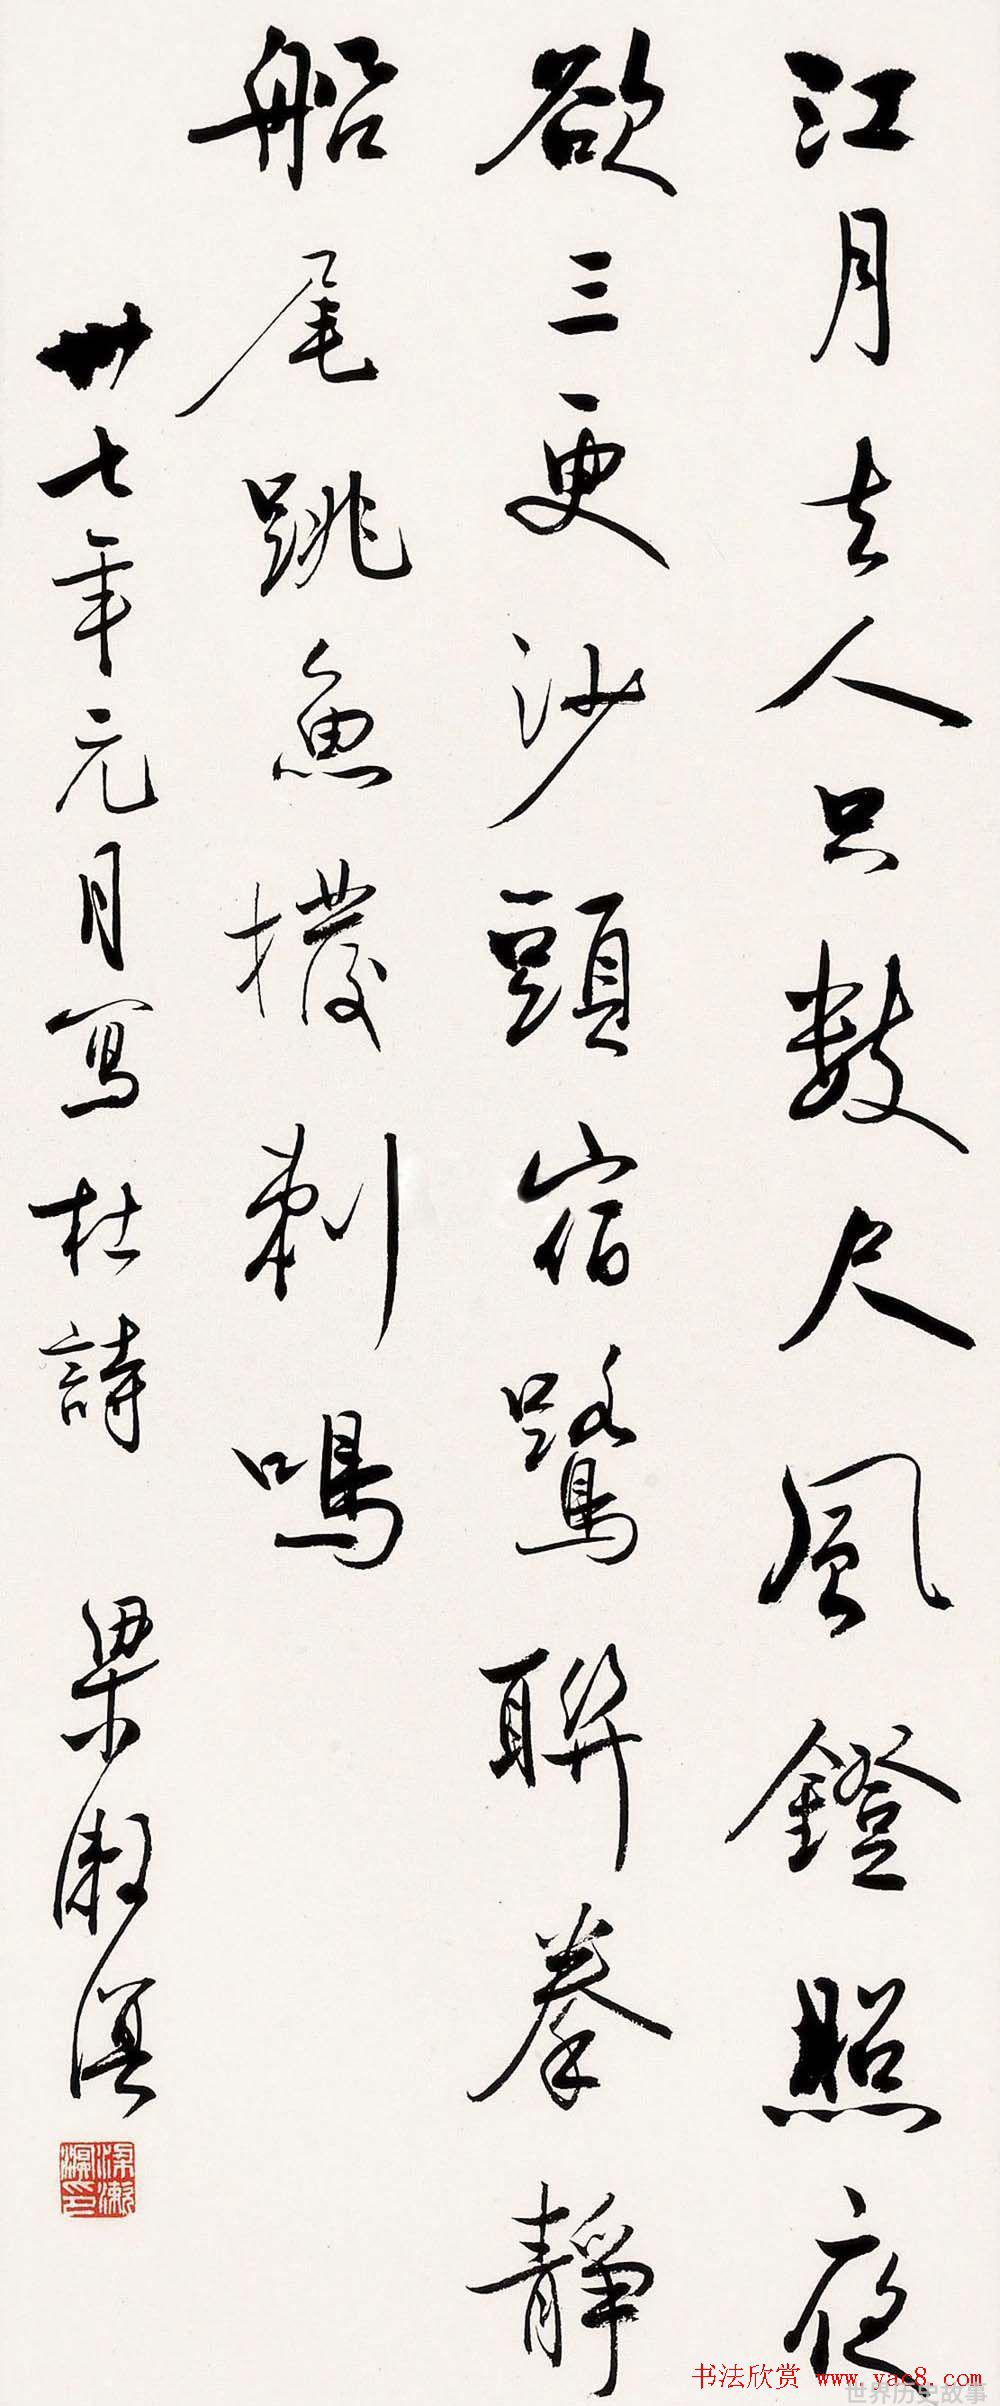 江月去人只數尺風鐙照夜
欲三更沙頭宿鷺聯拳靜
船尾跳魚撥剌鳴
卅七年元月寫杜詩 梁漱溟
梁漱溟印
书法欣赏 www.yac8.com
世界历史故事